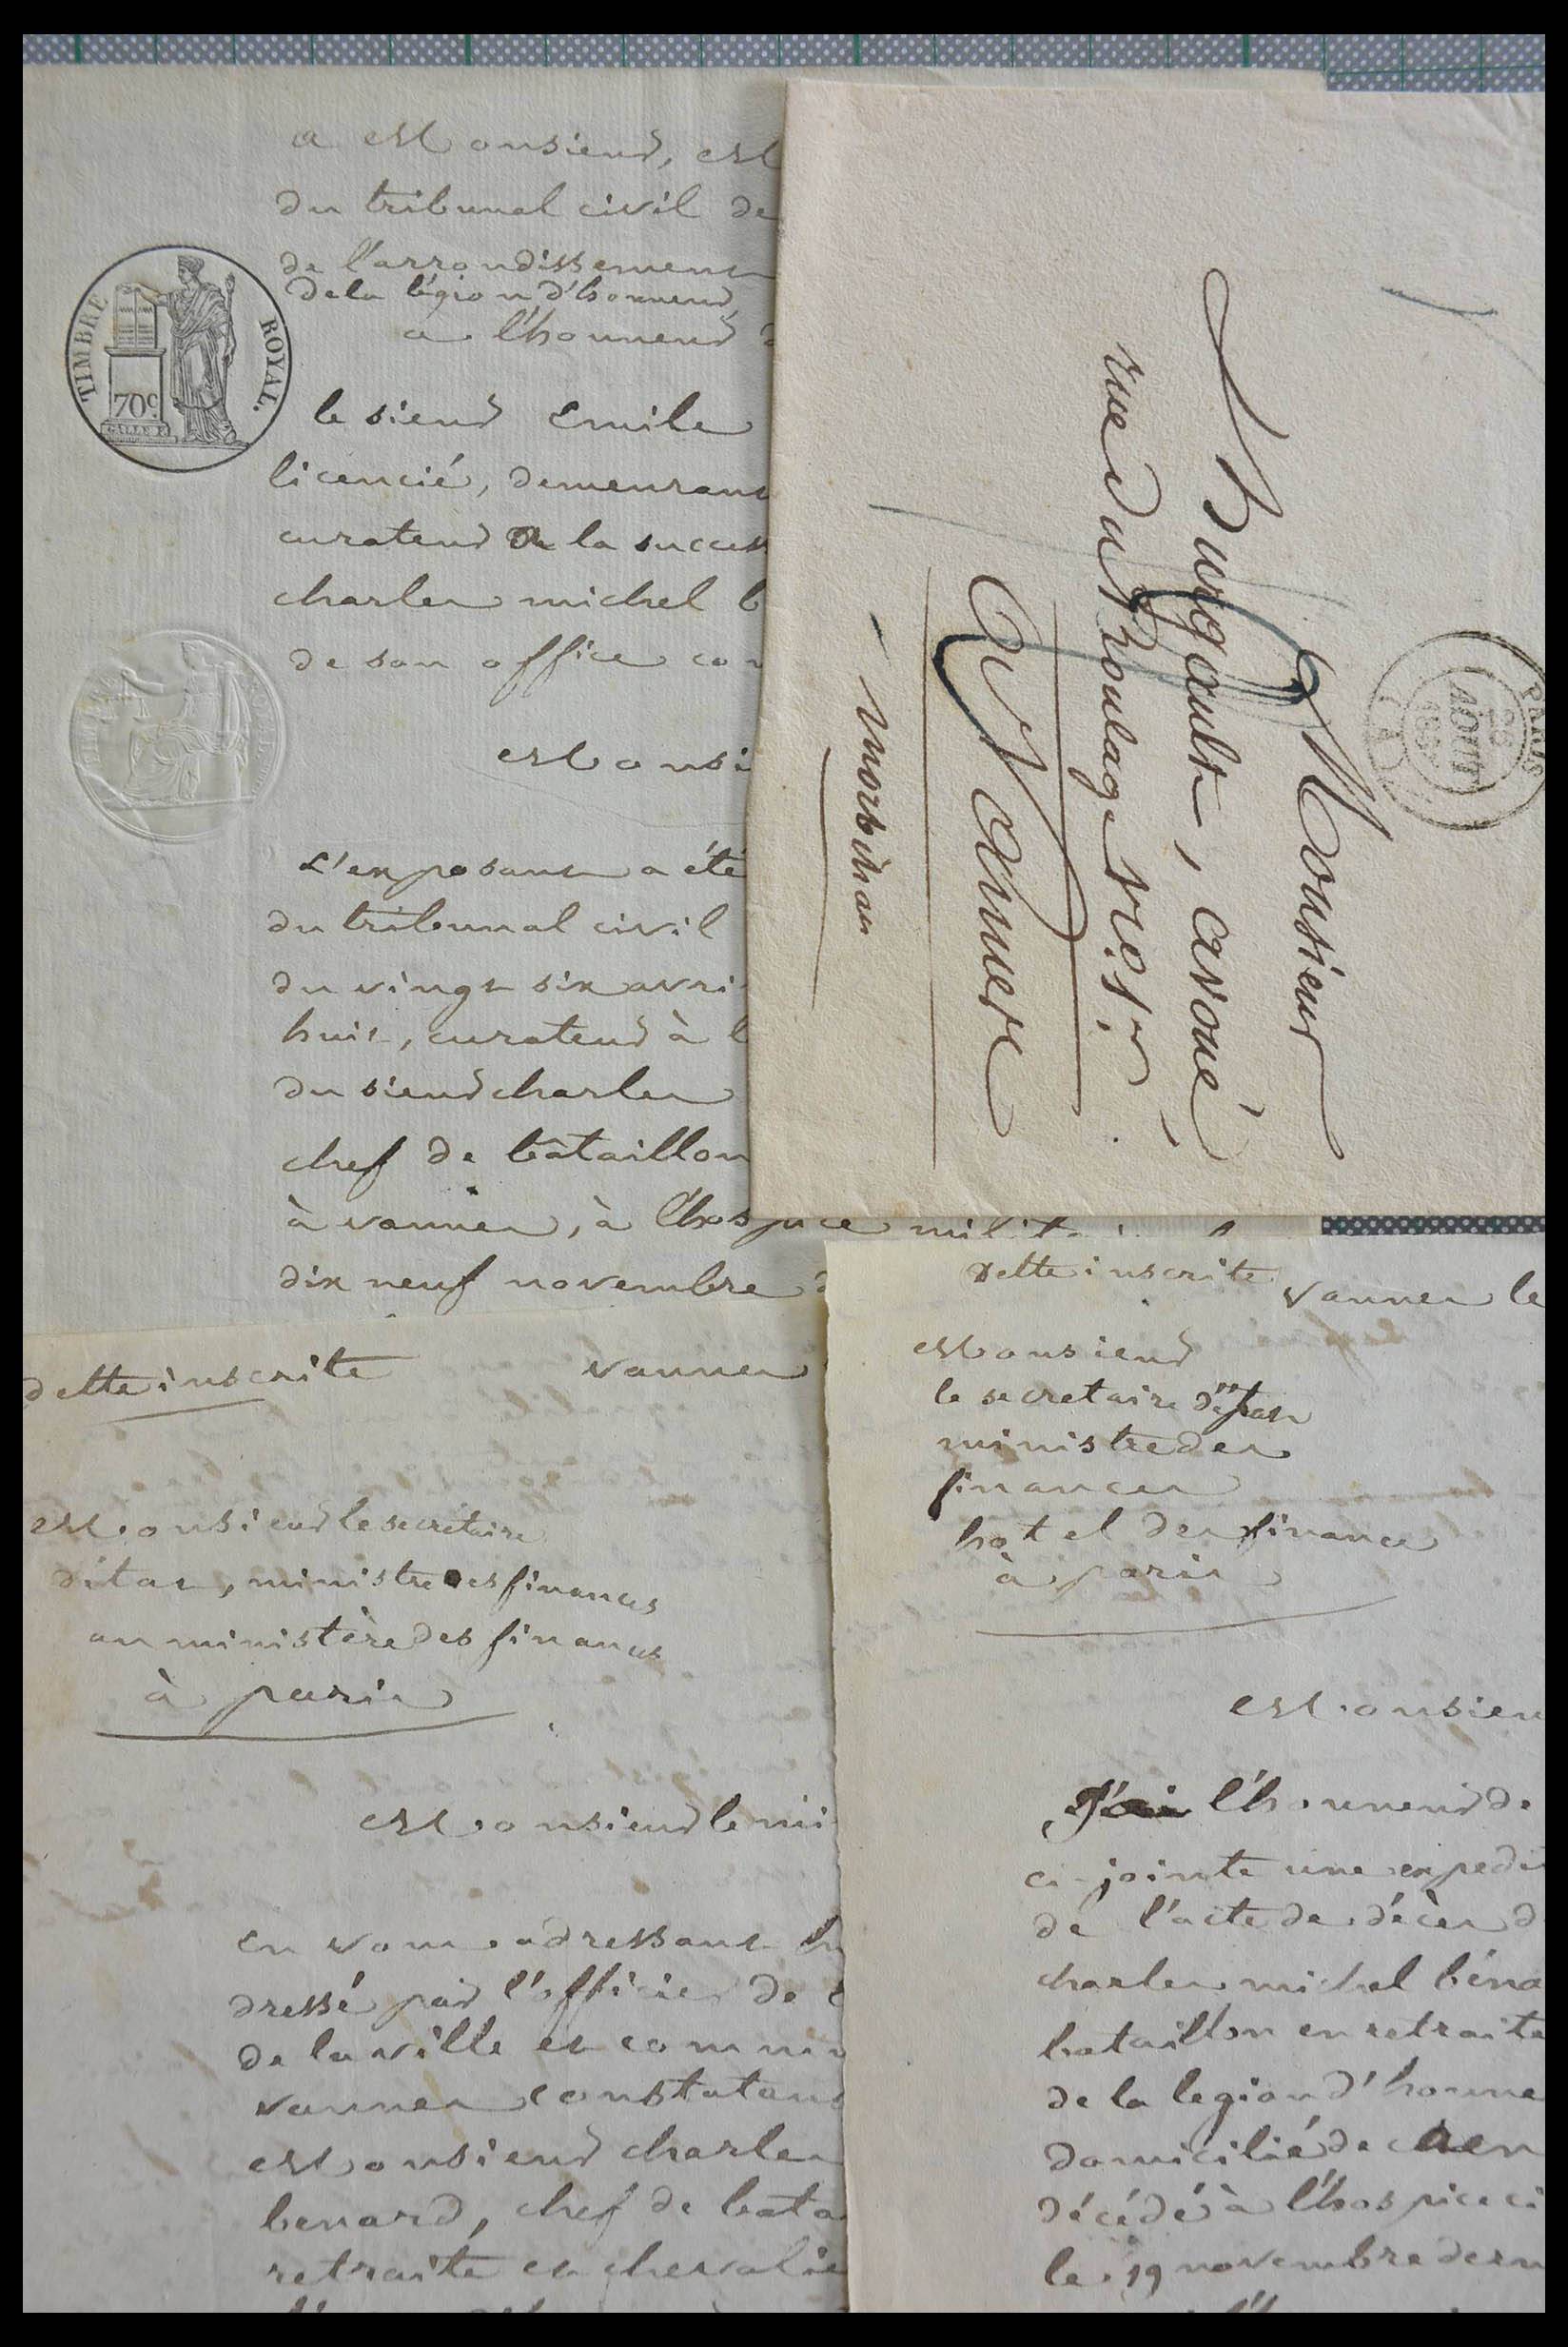 a Monsieur, M
du tribunal civil de
de l'arrondissement
de la légion d'honneur
a l'honneur d
TIMBRE ROYAL.
70c
le sieur Emile
licencié, demeurant
curateur de la success
charles michel b
de son office co
Monsi
L'exposant a été
du tribunal civil
du vingt six avri
huit, curateur à l
du sieur charles
chef de bataillon
à vannes, à l'hospice
dix neuf novembre d
Monsieur
Burgault, avoué,
rue du Roulage
à Vannes
morbihan
PARIS
AOUT
dette inscrite vannes
Monsieur le secrétaire
d'état, ministre des finances
au ministère des finances
à paris
Monsieur le mi
En vous adressant
dressé par l'officier de
de la ville et commu
vannes constatant
Monsieur charles
benard, chef de bata
retraite et chevalie
Dette inscrite vannes le
Monsieur
le secretaire d'etat
ministre des
finances
hotel des finances
à paris
Monsieu
J'ai l'honneur de
ci-jointe une expedi
de l'acte de décès d
charles michel béna
bataillon en retraite
de la legion d'honne
domicilié de
décédé à l'hospice ci
le 19 novembre dern